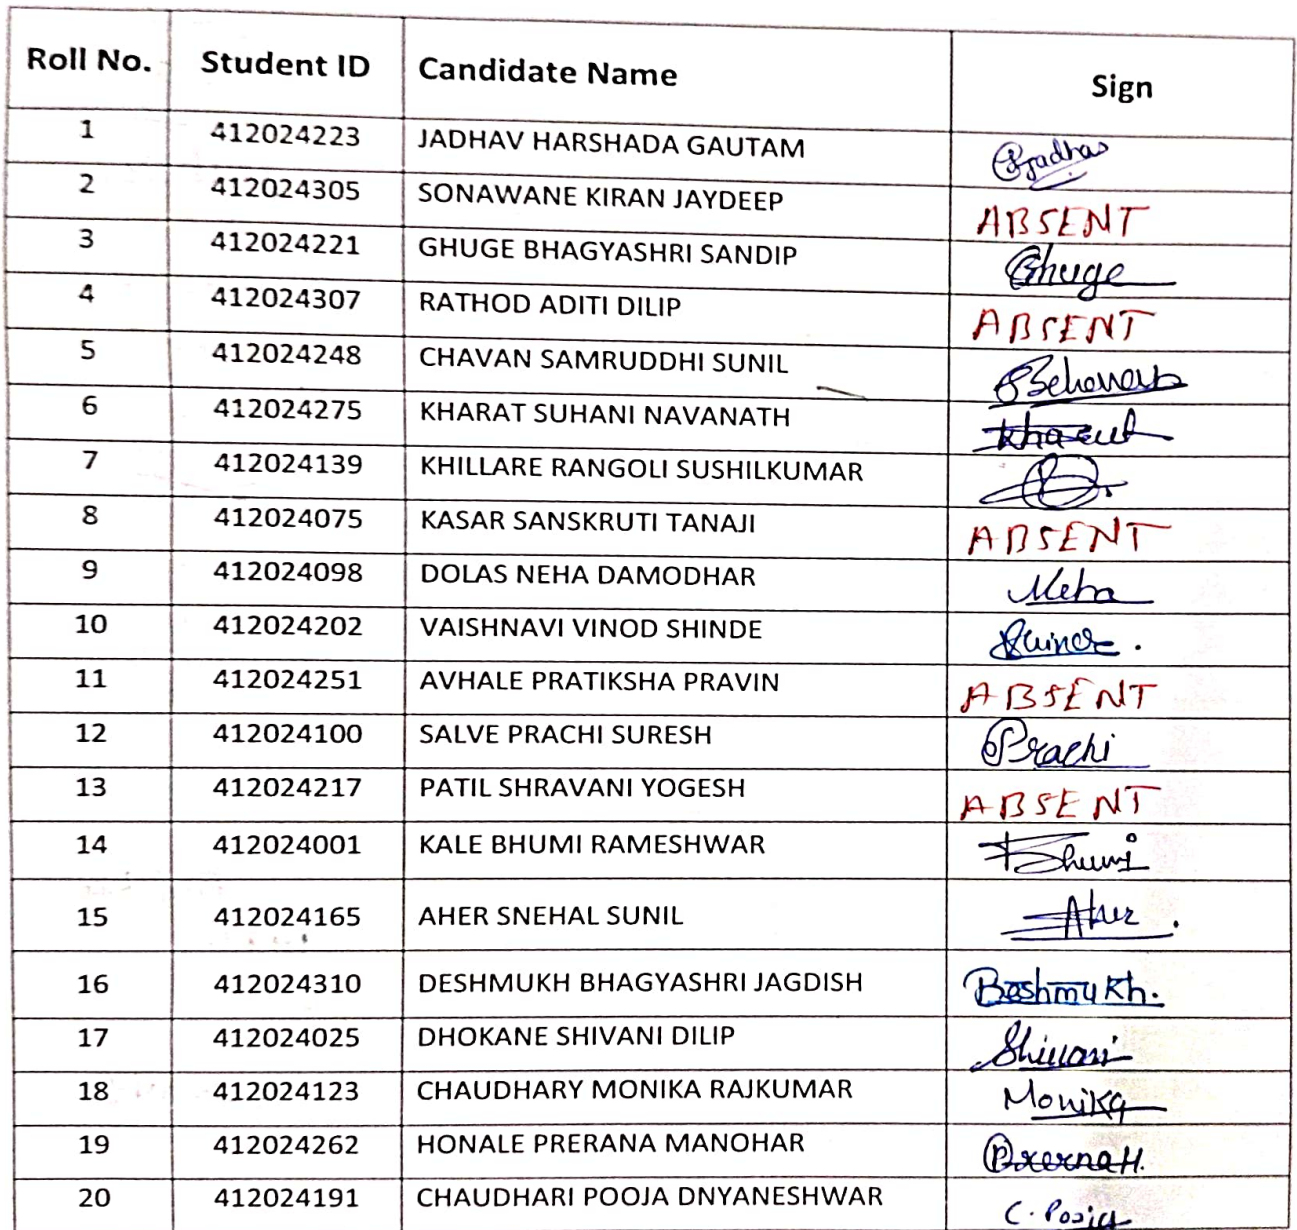 Roll No. Student ID Candidate Name Sign
1 412024223 JADHAV HARSHADA GAUTAM
2 412024305 SONAWANE KIRAN JAYDEEP ABSENT
3 412024221 GHUGE BHAGYASHRI SANDIP Ghuge
4 412024307 RATHOD ADITI DILIP ABSENT
5 412024248 CHAVAN SAMRUDDHI SUNIL
6 412024275 KHARAT SUHANI NAVANATH
7 412024139 KHILLARE RANGOLI SUSHILKUMAR
8 412024075 KASAR SANSKRUTI TANAJI ABSENT
9 412024098 DOLAS NEHA DAMODHAR Neha
10 412024202 VAISHNAVI VINOD SHINDE
11 412024251 AVHALE PRATIKSHA PRAVIN ABSENT
12 412024100 SALVE PRACHI SURESH Prachi
13 412024217 PATIL SHRAVANI YOGESH ABSENT
14 412024001 KALE BHUMI RAMESHWAR Bhumi
15 412024165 AHER SNEHAL SUNIL Aher
16 412024310 DESHMUKH BHAGYASHRI JAGDISH
17 412024025 DHOKANE SHIVANI DILIP Shivani
18 412024123 CHAUDHARY MONIKA RAJKUMAR Monika
19 412024262 HONALE PRERANA MANOHAR Prerna H.
20 412024191 CHAUDHARI POOJA DNYANESHWAR C. Pooja